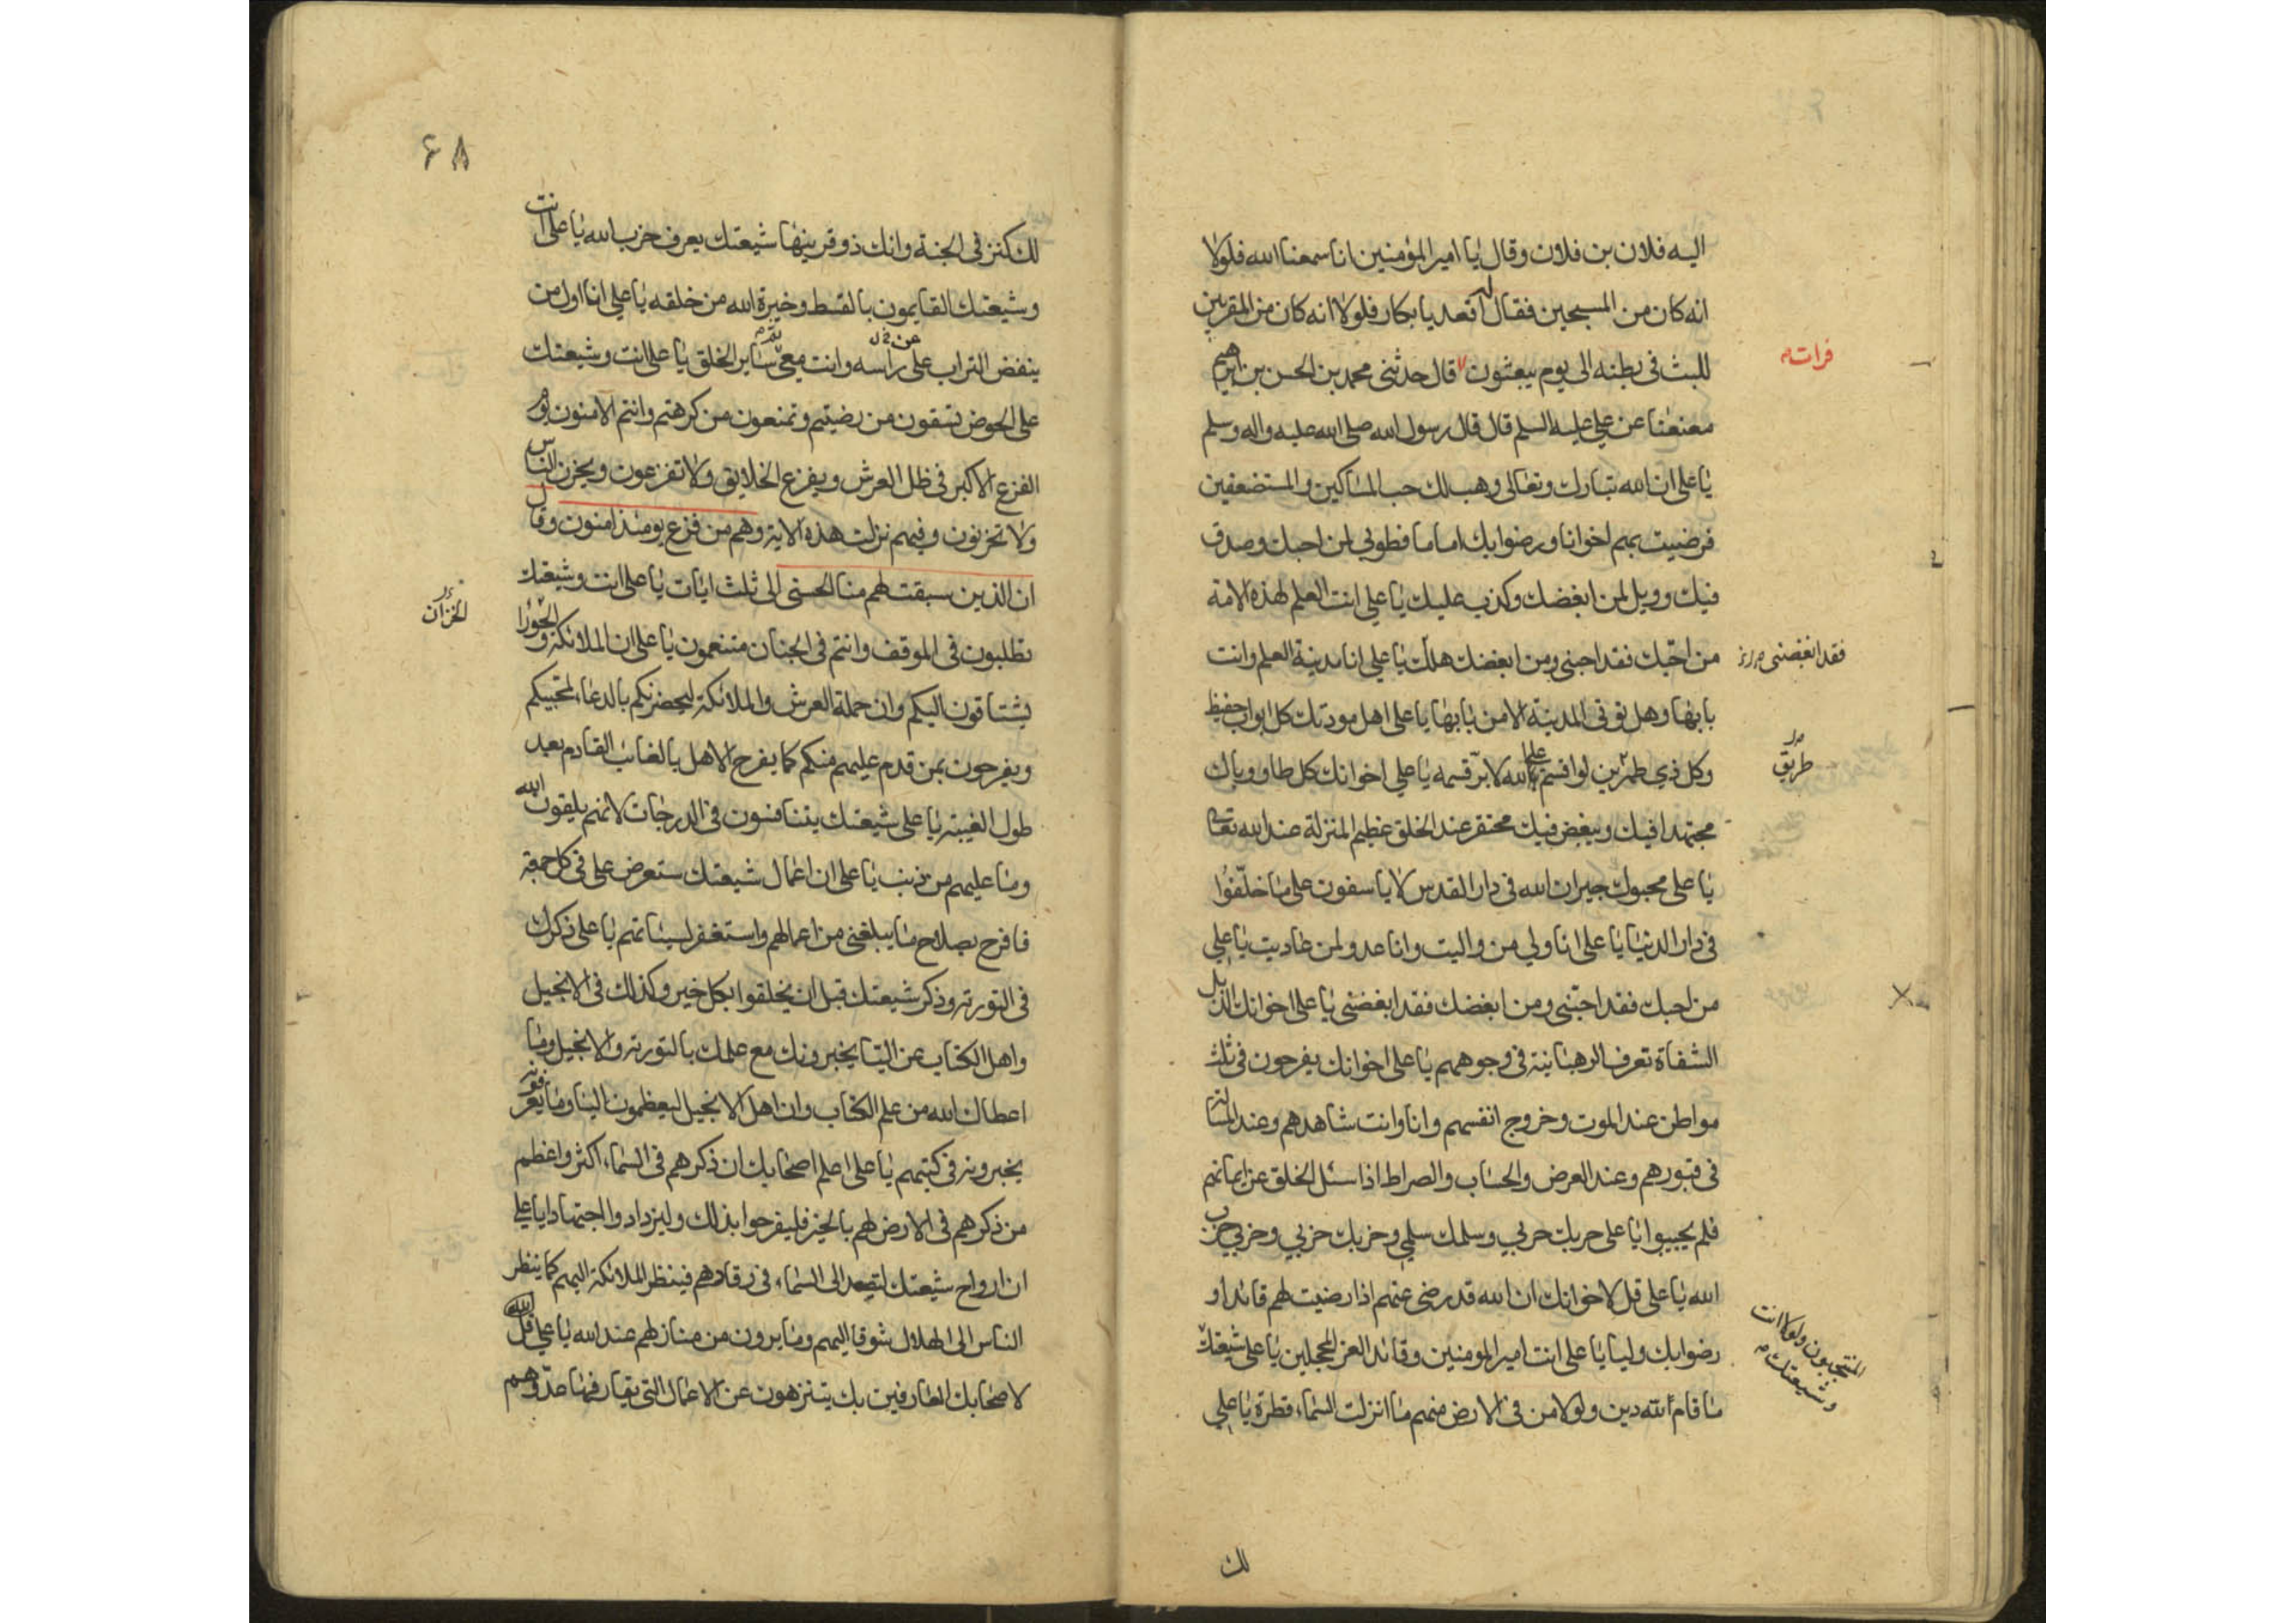 اليه فلان بن فلان وقال يا امير المؤمنين انا سمعنا الله فلولا
انه كان من المسبحين فقال له اقعد يا بكار فلولا انه كان من المقربين
للبث في بطنه الى يوم يبعثون قال حدثني محمد بن الحسن بن ابرهيم
فرات م
معنعنا عن علي عليه السلم قال قال رسول الله صلى الله عليه واله وسلم
يا علي ان الله تبارك وتعالى وهب لك حب المساكين والمستضعفين
فرضيت بهم اخوانا ورضوا بك اماما فطوبى لمن احبك وصدق
فيك وويل لمن ابغضك وكذب عليك يا علي انت العلم لهذه الامة
من احبك فقد احبني ومن ابغضك هلك يا علي انا مدينة العلم وانت
فقد ابغضنى
بابها وهل توتى المدينة الا من بابها يا علي اهل مودتك كل اواب حفيظ
وكل ذي طمرين لو اقسم على الله لابر قسمه يا علي اخوانك كل طاو وباك
طريق
مجتهد افيك ويبغض فيك محتقر عند الخلق عظيم المنزلة عند الله تعالى
يا علي محبوك جيران الله في دار القدس لا ياسفون على ما خلفوا
في دار الدنيا يا علي انا ولي من واليت وانا عدو لمن عاديت يا علي
من احبك فقد احبني ومن ابغضك فقد ابغضني يا علي اخوانك الذبل
الشفاة تعرف الرهبانية في وجوههم يا علي اخوانك يفرحون في ثلث
مواطن عند الموت وخروج انفسهم وانا وانت شاهدهم وعند المسالة
في قبورهم وعند العرض والحساب والصراط اذا سئل الخلق عن ايمانهم
فلم يجيبوا يا علي حربك حربي وسلمك سلمي وحزبك حزبي وحزبي حزب
الله يا علي قل لاخوانك ان الله قد رضي عنهم اذا رضيت لهم قائدا و
رضوا بك وليا يا علي انت امير المومنين وقائد الغر المحجلين يا علي شيعتك
المنتجبون ولولا انت
وشيعتك م
ما قام لله دين ولولا من في الارض منهم ما انزلت السماء قطرة يا علي
لك
۶۸
لك كنز في الجنة وانك ذو قرينها شيعتك يعرف حزب الله يا علي انت
وشيعتك القايمون بالقسط وخيرة الله من خلقه يا علي انا اول من
ينفض التراب على راسه وانت معي ثم ساير الخلق يا علي انت وشيعتك
عن
على الحوض تسقون من رضيتم وتمنعون من كرهتم وانتم الامنون يوم
الفزع الاكبر في ظل العرش ويفزع الخلايق ولا تفزعون ويحزن الناس
ولا تحزنون وفيهم نزلت هذه الاية وهم من فزع يومئذ امنون وقال
ان الذين سبقت لهم منا الحسنى الى ثلث ايات يا علي انت وشيعتك
تطلبون في الموقف وانتم في الجنان متنعمون يا علي ان الملائكة والحورا
الخزان
يشتاقون اليكم وان حملة العرش والملائكة ليحضرنكم بالدعاء لمحبيكم
ويفرحون بمن قدم عليهم منكم كما يفرح الاهل بالغائب القادم بعد
طول الغيبة يا علي شيعتك يتنافسون في الدرجات لانهم يلقون الله
وما عليهم من ذنب يا علي ان اعمال شيعتك ستعرض علي في كل جمعة
فافرح بصلاح ما يبلغني من اعمالهم واستغفر لسيئاتهم يا علي ذكرك
في التورية وذكر شيعتك قبل ان يخلقوا بكل خير وكذلك في الانجيل
واهل الكتاب عن اليا يخبرونك مع علمك بالتورية والانجيل وما
اعطاك الله من علم الكتاب وان اهل الانجيل ليعظمون اليا وما يعرفونه
يخبرونه في كتبهم يا علي اعلم اصحابك ان ذكرهم في السماء اكثر واعظم
من ذكرهم في الارض لهم بالخير فليفرحوا بذلك وليزدادوا اجتهادا يا علي
ان ارواح شيعتك لتصعد الى السماء في رقادهم فينظر الملائكة اليهم كما ينظر
الناس الى الهلال شوقا اليهم وما يرون من منازلهم عند الله يا علي قل
لاصحابك العارفين بك يتنزهون عن الاعمال التي يقارفها عدوهم